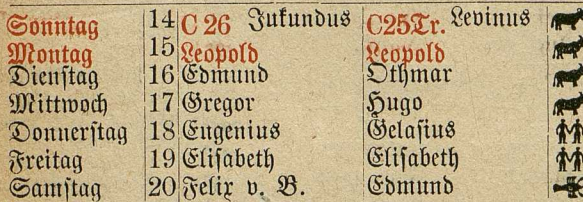 Sonntag 14 C 26 Jukundus C25Tr. Levinus
Montag 15 Leopold Leopold
Dienſtag 16 Edmund Othmar
Mittwoch 17 Gregor Hugo
Donnerſtag 18 Eugenius Gelaſius
Freitag 19 Eliſabeth Eliſabeth
Samſtag 20 Felix v. B. Edmund